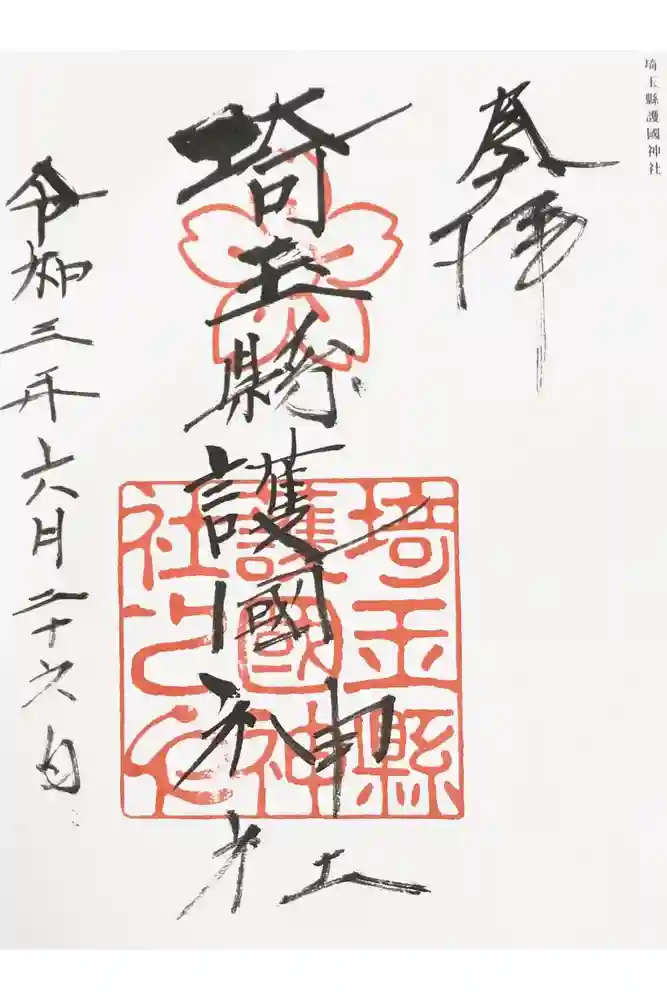 埼玉縣護國神社
奉拝
埼玉縣護國神社
埼玉縣
護國神
社之印
令和三年六月二十六日